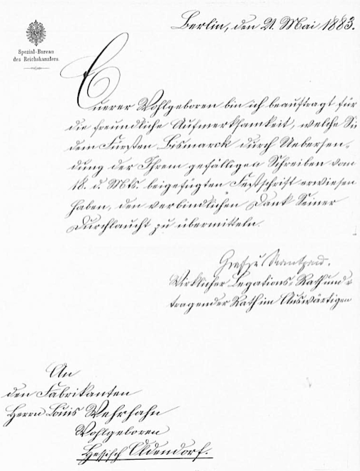 Spezial-Bureau
des Reichskanzlers
Berlin, den 21. Mai 1883.
Euerer Wohlgeboren bin ich beauftragt für
die freundliche Aufmerksamkeit, welche Sie
dem Fürsten Bismarck durch Uebersen-
dung der Ihrem gefälligen Schreiben vom
18. d. Mts. beigefügten Festschrift erwiesen
haben, den verbindlichen Dank Seiner
Durchlaucht zu übermitteln.
Graf zu Rantzau.
Wirklicher Legations-Rath und vor-
tragender Rath im Auswärtigen
An
den Fabrikanten
Herrn Louis Wehrhahn
Wohlgeboren
Hessisch Oldendorf.